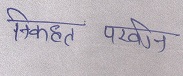 निकहत परवीन